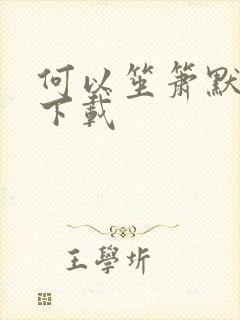 何以笙箫默
下載
王學圻